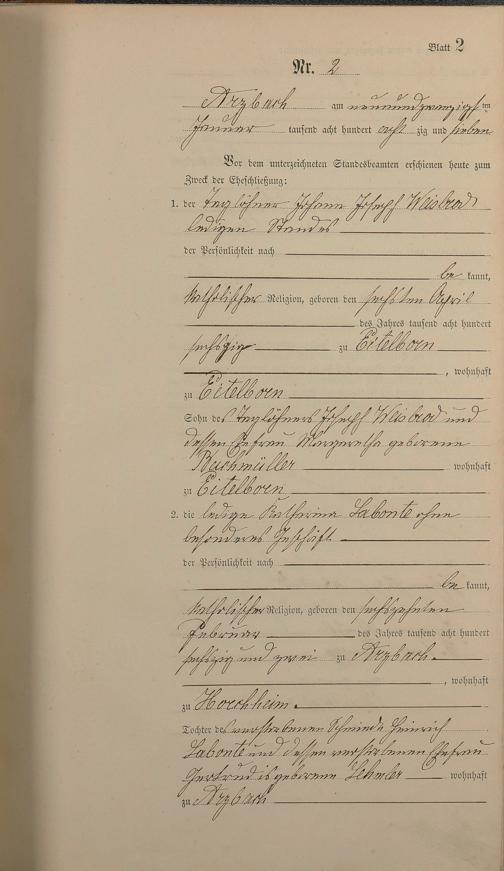 Blatt 2
Nr. 2
Arzbach am neunundzwanzigsten
Januar tausend acht hundert acht zig und sieben
Vor dem unterzeichneten Standesbeamten erschienen heute zum
Zweck der Eheschließung:
1. der Taglöhner Johann Joseph Weisbrod
ledigen Standes
der Persönlichkeit nach
be kannt,
katholischer Religion, geboren den sechsten April
des Jahres tausend acht hundert
sechszig zu Eitelborn
, wohnhaft
zu Eitelborn
Sohn des Taglöhners Joseph Weisbrod und
dessen Ehefrau Margarethe geborene
Bachmüller wohnhaft
zu Eitelborn
2. die ledige Katharina Labonte ohne
besonderes Geschäft
der Persönlichkeit nach
be kannt,
katholischer Religion, geboren den sechszehnten
Februar des Jahres tausend acht hundert
sechszig und zwei zu Arzbach
, wohnhaft
zu Horchheim
Tochter des verstorbenen Schmieds Heinrich
Labonte und dessen verstorbenen Ehefrau
Gertrudis geborene wohnhaft
zu Arzbach